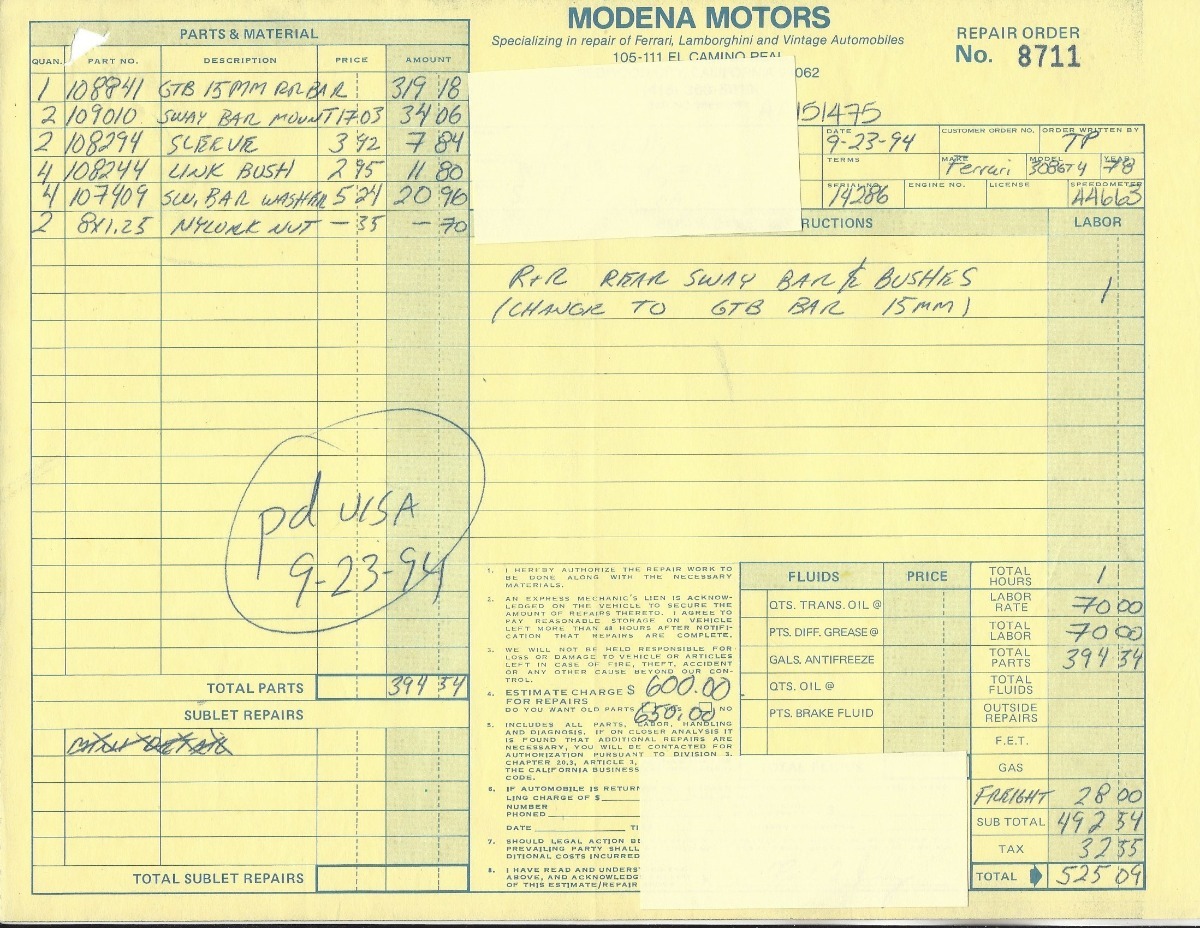 MODENA MOTORS
Specializing in repair of Ferrari, Lamborghini and Vintage Automobiles
105-111 EL CAMINO REAL
062
REPAIR ORDER
No. 8711
151475
DATE 9-23-94
CUSTOMER ORDER NO.
ORDER WRITTEN BY TP
TERMS
MAKE Ferrari
MODEL 308GT4
YEAR 78
SERIAL NO. 14286
ENGINE NO.
LICENSE
SPEEDOMETER 44663
PARTS & MATERIAL
QUAN. PART NO. DESCRIPTION PRICE AMOUNT
1 108841 GTB 15MM RR BAR 319 18
2 109010 SWAY BAR MOUNT 17 03 34 06
2 108294 SLEEVE 3 92 7 84
4 108244 LINK BUSH 2 95 11 80
4 107409 SW. BAR WASHER 5 24 20 96
2 8X1.25 NYLOCK NUT — 35 — 70
TOTAL PARTS 394 54
SUBLET REPAIRS
TOTAL SUBLET REPAIRS
pd VISA
9-23-94
RUCTIONS LABOR
R+R REAR SWAY BAR & BUSHES 1
(CHANGE TO GTB BAR 15MM)
1. I HEREBY AUTHORIZE THE REPAIR WORK TO
BE DONE ALONG WITH THE NECESSARY
MATERIALS.
2. AN EXPRESS MECHANIC'S LIEN IS ACKNOW-
LEDGED ON THE VEHICLE TO SECURE THE
AMOUNT OF REPAIRS THERETO. I AGREE TO
PAY REASONABLE STORAGE ON VEHICLE
LEFT MORE THAN 48 HOURS AFTER NOTIFI-
CATION THAT REPAIRS ARE COMPLETE.
3. WE WILL NOT BE HELD RESPONSIBLE FOR
LOSS OR DAMAGE TO VEHICLE OR ARTICLES
LEFT IN CASE OF FIRE, THEFT, ACCIDENT
OR ANY OTHER CAUSE BEYOND OUR CON-
TROL.
4. ESTIMATE CHARGE $ 600.00
FOR REPAIRS
DO YOU WANT OLD PARTS YES NO
650.00
5. INCLUDES ALL PARTS, LABOR, HANDLING
AND DIAGNOSIS. IF ON CLOSER ANALYSIS IT
IS FOUND THAT ADDITIONAL REPAIRS ARE
NECESSARY, YOU WILL BE CONTACTED FOR
AUTHORIZATION PURSUANT TO DIVISION 3,
CHAPTER 20.3, ARTICLE 3,
THE CALIFORNIA BUSINESS
CODE.
6. IF AUTOMOBILE IS RETURN
LING CHARGE OF $
NUMBER
PHONED
DATE TI
7. SHOULD LEGAL ACTION BE
PREVAILING PARTY SHALL
DITIONAL COSTS INCURRED
8. I HAVE READ AND UNDERST
ABOVE, AND ACKNOWLEDG
OF THIS ESTIMATE/REPAIR
FLUIDS PRICE
QTS. TRANS. OIL @
PTS. DIFF. GREASE @
GALS. ANTIFREEZE
QTS. OIL @
PTS. BRAKE FLUID
TOTAL HOURS 1
LABOR RATE 70 00
TOTAL LABOR 70 00
TOTAL PARTS 394 54
TOTAL FLUIDS
OUTSIDE REPAIRS
F.E.T.
GAS
FREIGHT 28 00
SUB TOTAL 492 54
TAX 32 55
TOTAL 525 09